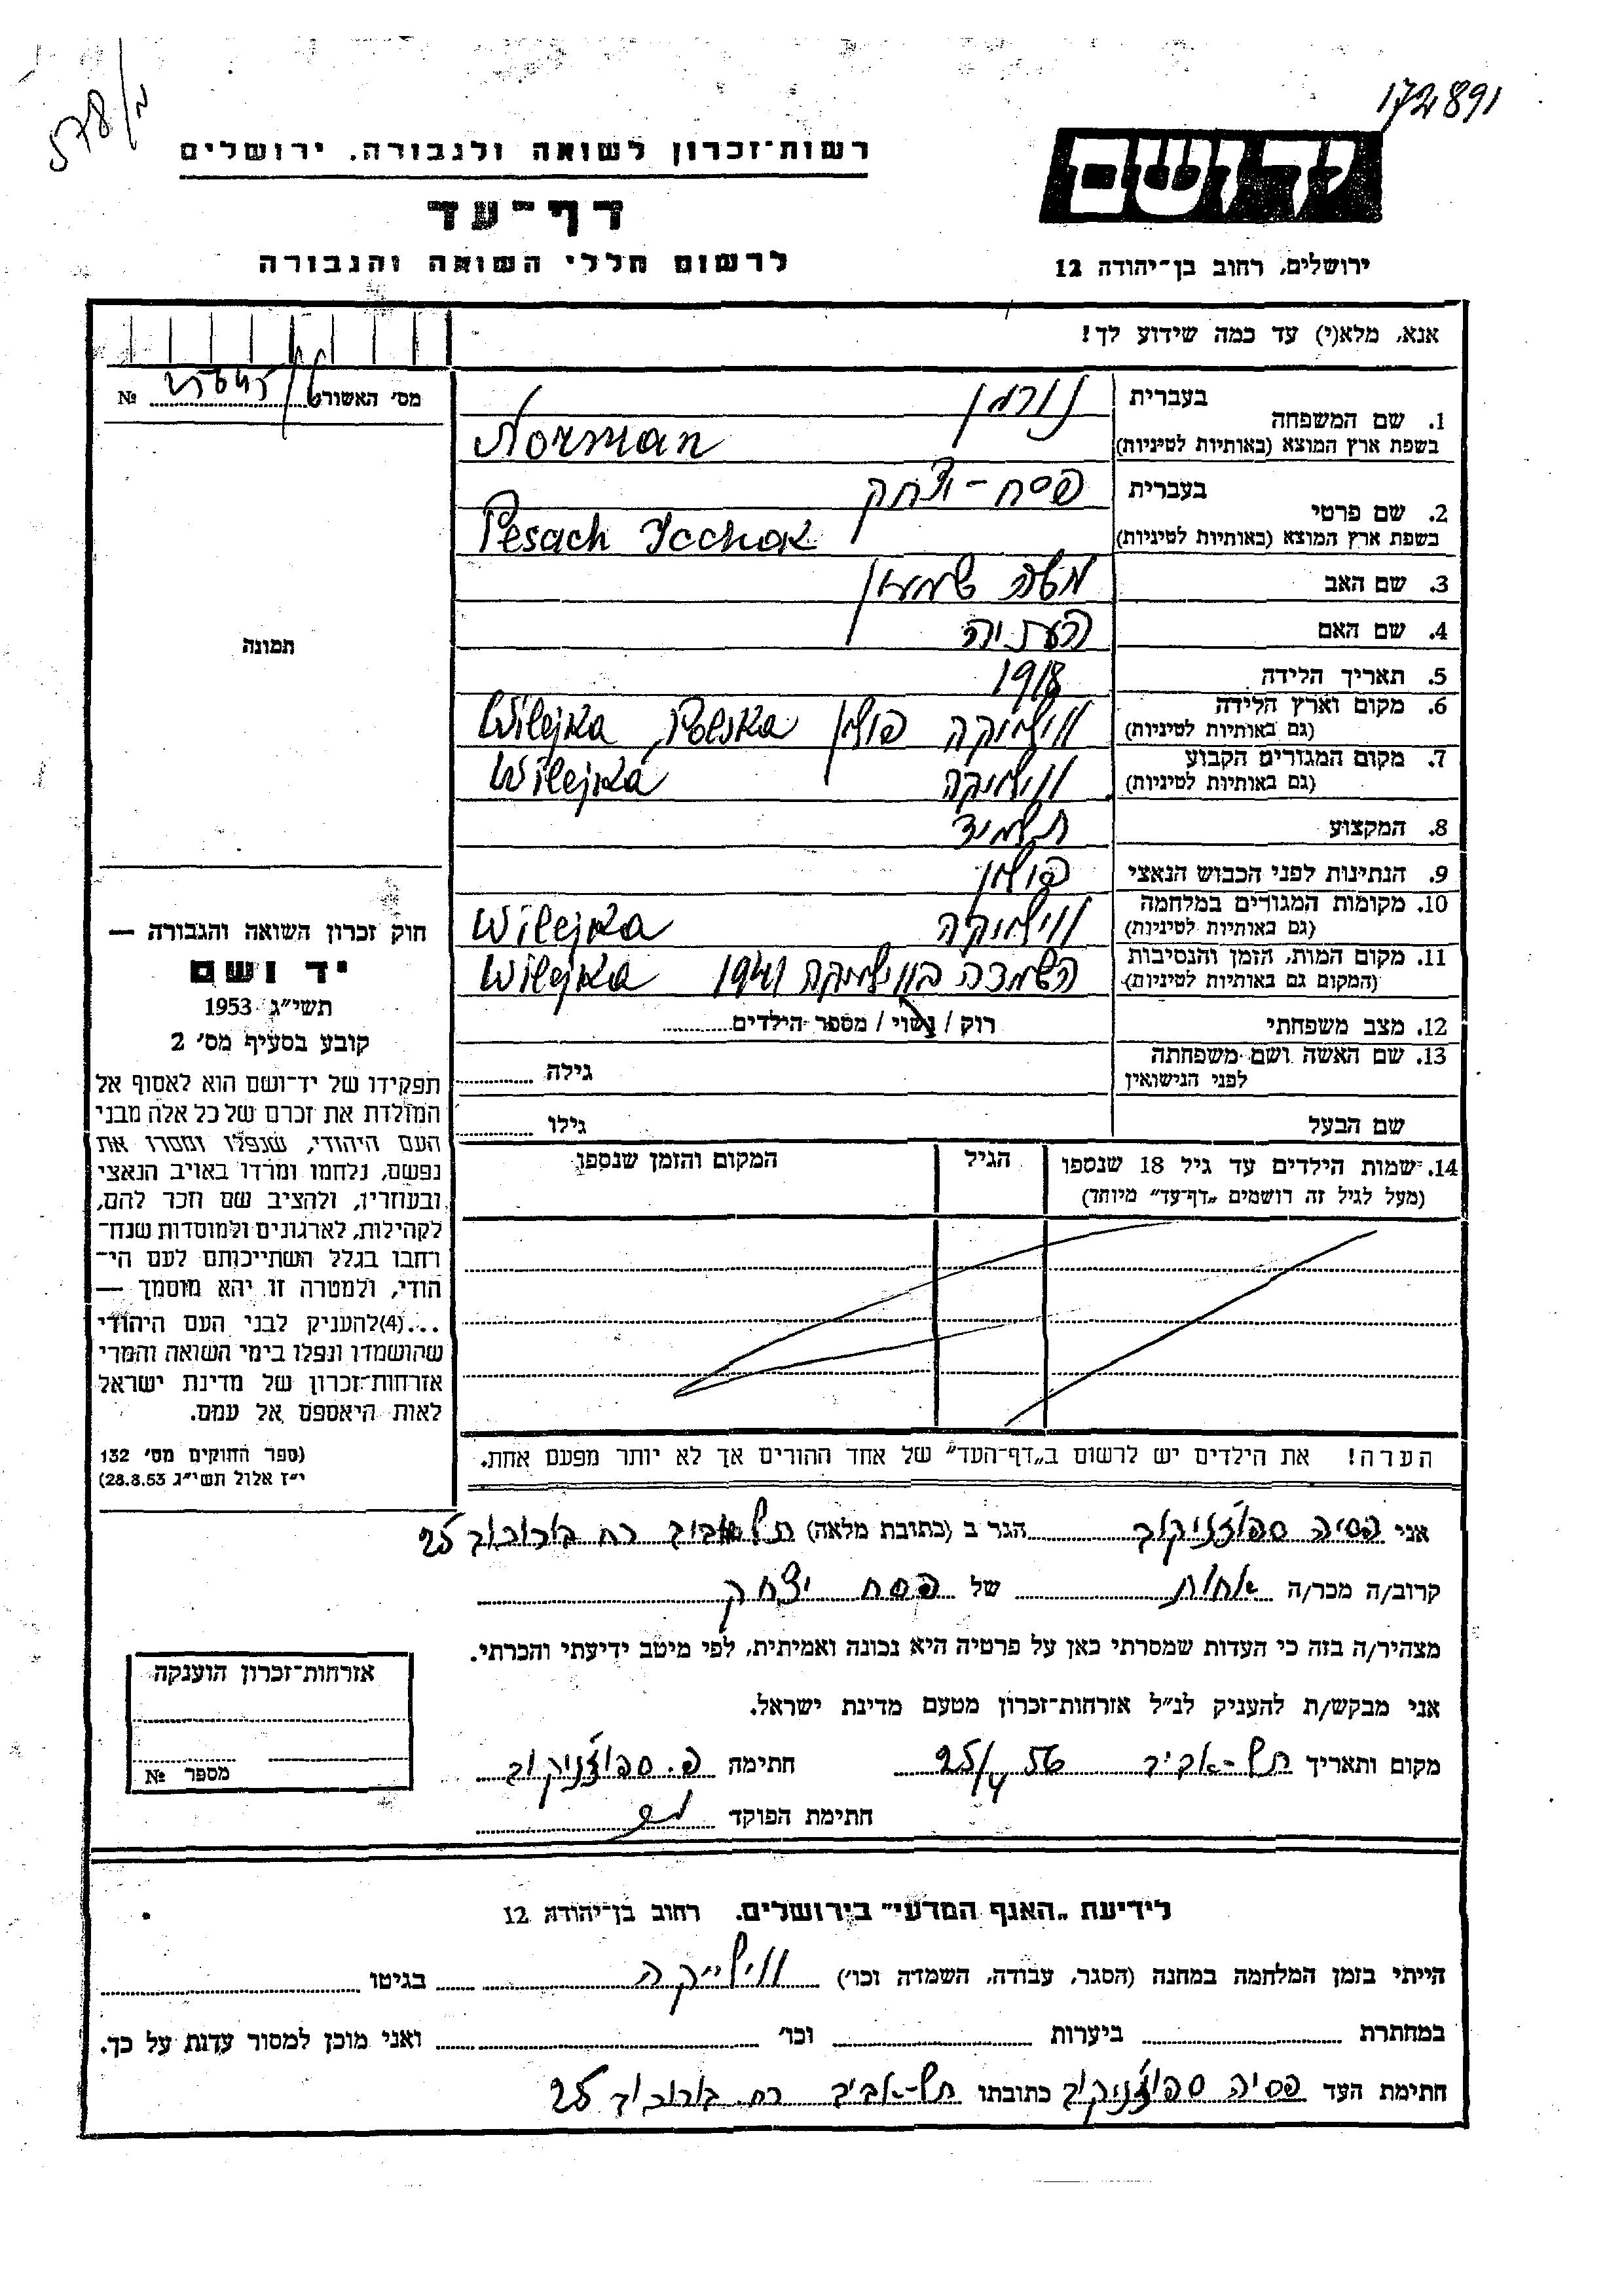 172891
578/מ
רשות־זכרון לשואה ולגבורה, ירושלים
דף־עד
לרשום חללי השואה והגבורה
יד ושם
ירושלים, רחוב בן־יהודה 12
אנא, מלא(י) עד כמה שידוע לך!
מס' האשורט № 25645
1. שם המשפחה בעברית נורמן
בשפת ארץ המוצא (באותיות לטיניות) Norman
2. שם פרטי בעברית פסח-יצחק
בשפת ארץ המוצא (באותיות לטיניות) Pesach Icchok
3. שם האב משה שמעון
4. שם האם
5. תאריך הלידה 1918
6. מקום וארץ הלידה (גם באותיות לטיניות) ווילייקה פולין Wilejka, Polska
7. מקום המגורים הקבוע (גם באותיות לטיניות) ווילייקה Wilejka
8. המקצוע תלמיד
9. הנתינות לפני הכבוש הנאצי פולין
10. מקומות המגורים במלחמה (גם באותיות לטיניות) ווילייקה Wilejka
11. מקום המות, הזמן והנסיבות (המקום גם באותיות לטיניות) השמדה בווילייקה 1941 Wilejka
12. מצב משפחתי רוק / נשוי / מספר הילדים
13. שם האשה ושם משפחתה לפני הנישואין גילה
שם הבעל גילו
14. שמות הילדים עד גיל 18 שנספו הגיל המקום והזמן שנספו
(מעל לגיל זה רושמים „דף־עד" מיוחד)
תמונה
חוק זכרון השואה והגבורה —
יד ושם
תשי"ג 1953
קובע בסעיף מס' 2
תפקידו של יד־ושם הוא לאסוף אל
המולדת את זכרם של כל אלה מבני
העם היהודי, שנפלו ומסרו את
נפשם, נלחמו ומרדו באויב הנאצי
ובעוזריו, ולהציב שם וזכר להם,
לקהילות, לארגונים ולמוסדות שנח־
רבו בגלל השתייכותם לעם הי־
הודי, ולמטרה זו יהא מוסמך —
...(4)להעניק לבני העם היהודי
שהושמדו ונפלו בימי השואה והמרי
אזרחות־זכרון של מדינת ישראל
לאות היאספם אל עמם.
(ספר החוקים מס' 132
י"ז אלול תשי"ג 28.8.53)
הערה! את הילדים יש לרשום ב„דף־העד" של אחד ההורים אך לא יותר מפעם אחת.
אני פסיה ספוז'ניקוב הגר ב (כתובת מלאה) תל אביב רח בורוכוב 25
קרוב/ה מכר/ה אחות של פסח יצחק
מצהיר/ה בזה כי העדות שמסרתי כאן על פרטיה היא נכונה ואמיתית, לפי מיטב ידיעתי והכרתי.
אני מבקש/ת להעניק לנ"ל אזרחות־זכרון מטעם מדינת ישראל.
מקום ותאריך תל-אביב 25/4 56 חתימה פ. ספוז'ניקוב
חתימת הפוקד
אזרחות־זכרון הוענקה
מספר №
לידיעת „האגף המדעי" בירושלים. רחוב בן־יהודה 12
הייתי בזמן המלחמה במחנה (הסגר, עבודה, השמדה וכו') ווילייקה בגיטו
במחתרת ביערות וכו' ואני מוכן למסור עדות על כך.
חתימת העד פסיה ספוז'ניקוב כתובתו תל-אביב רח. בורוכוב 25